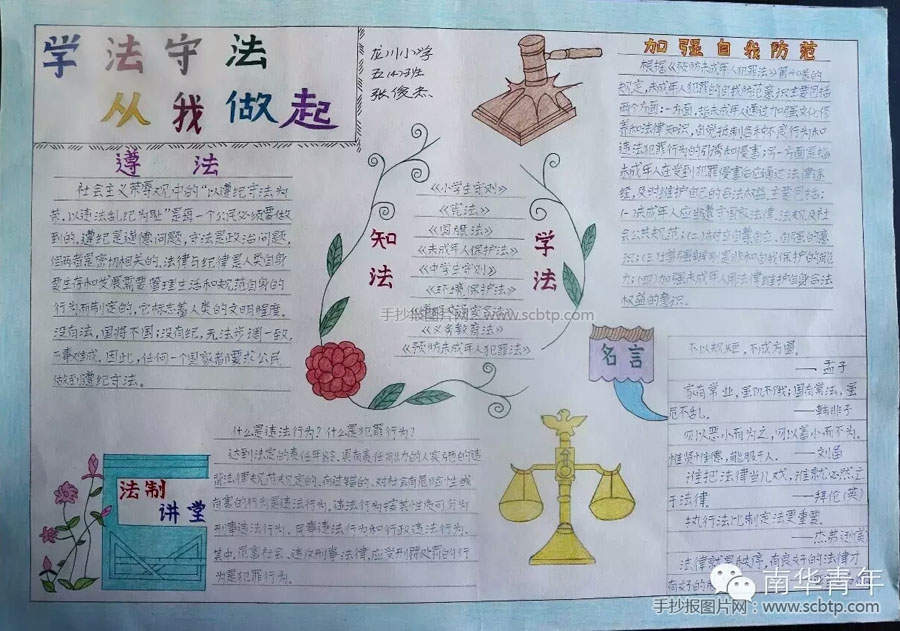 学法守法
从我做起
龙川小学
五(4)班
张俊杰
加强自我防范
根据《预防未成年人犯罪法》第四十条的
规定,未成年人犯罪的自我防范意识主要包括
两个方面:一方面,指未成年人通过加强文化修
养和法律知识,自觉抵制各种不良行为和
违法犯罪行为的引诱和侵害;另一方面是指
未成年人在受到犯罪侵害后应通过法律途
经,及时维护自己的合法权益,主要包括:
(一)未成年人应当遵守国家法律、法规及社
会公共规范;(二)树立自尊自立、自强的意
识;(三)增强辨别是非和自我保护的能
力;(四)加强未成年人用法律维护自身合法
权益的意识。
遵 法
社会主义荣辱观中的“以遵纪守法为
荣,以违法乱纪为耻”是每一个公民必须要做
到的,遵纪是道德问题,守法是政治问题,
但两者是密切相关的。法律与纪律是人类自身
要生存和发展需要管理生活和规范自身的
行为而制定的,它标志着人类的文明程度。
没有法,国将不国;没有纪,无法步调一致,
万事难成。因此,任何一个国家都要求公民
做到遵纪守法。
知法
学法
《小学生守则》
《宪法》
《国旗法》
《未成年人保护法》
《中学生守则》
《环境保护法》
手抄报图片网:www.scbtp.com
《义务教育法》
《预防未成年人犯罪法》
名言
不以规矩,不成方圆。
——孟子
家有常业,虽饥不饿;国有常法,虽
危不乱。 ——韩非子
勿以恶小而为之,勿以善小而不为。
惟贤惟德,能服于人。 ——刘备
谁把法律当儿戏,谁就必然亡
于法律。 ——拜伦(英)
执行法比制定法更重要。
——杰弗逊(美)
法律就是秩序,有良好的法律才
有好的秩
法制
讲堂
什么是违法行为?什么是犯罪行为?
达到法定的责任年龄、具有责任能力的人实施的违
反法律规范和规定的、有过错的、对社会有危害性或
有害的行为是违法行为。违法行为按其性质可分为
刑事违法行为、民事违法行为和行政违法行为。
其中,危害社会、违反刑事法律,应受刑罚处罚的行
为是犯罪行为。
南华青年
手抄报图片网:www.scbtp.com